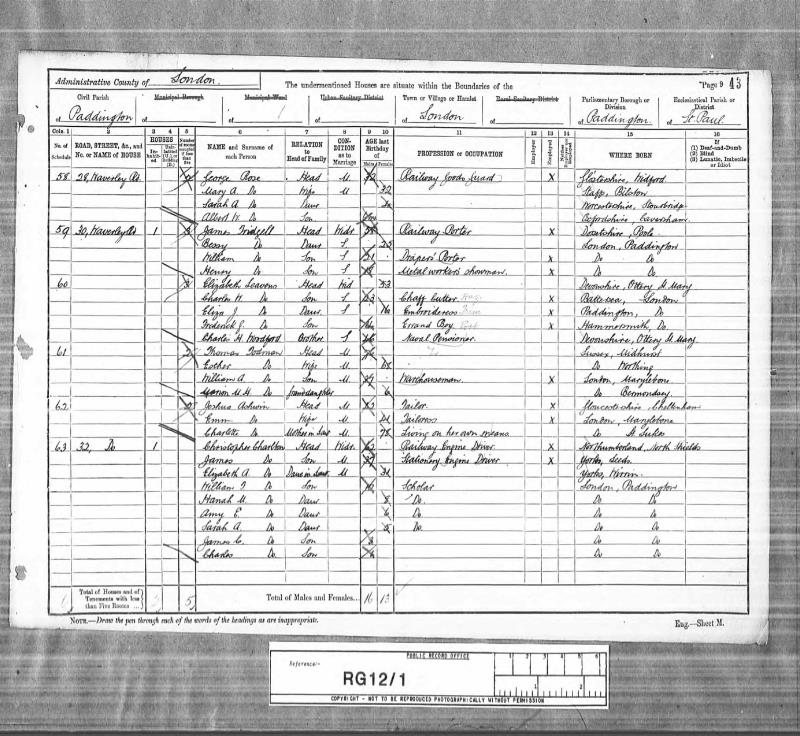 Administrative County of London The undermentioned Houses are situate within the Boundaries of the Page 9 43
Civil Parish Municipal Borough Municipal Ward Urban Sanitary District Town or Village or Hamlet Rural Sanitary District Parliamentary Borough or Division Ecclesiastical Parish or District
of Paddington of of of of London of of Paddington of St Paul
Cols. 1 2 3 4 5 6 7 8 9 10 11 12 13 14 15 16
No. of Schedule ROAD, STREET, &c., and No. or NAME of HOUSE HOUSES NAME and Surname of each Person RELATION to Head of Family CONDITION as to Marriage AGE last Birthday of Males Females PROFESSION or OCCUPATION Employer Employed WHERE BORN If (1) Deaf-and-Dumb (2) Blind (3) Lunatic, Imbecile or Idiot
58 28, Waverley Rd George Rose Head M Railway Goods Guard X Glostershire, Widford
Mary A. Do Wife M 32 Staffs, Bilston
Sarah A. Do Daur Worcestershire, Stourbridge
Albert W. Do Son Oxfordshire, Caversham
59 30, Waverley Rd 1 James Head Widr Railway Porter X Dorsetshire, Poole
Bessy Do Daur S 25 London, Paddington
William Do Son S 21 Drapers Porter X Do Do
Henry Do Son S 18 Metal workers showman X Do Do
60 3 Elizabeth Leavens Head Wid 53 Devonshire, Ottery St Mary
Charles H. Do Son S 23 Chaff Cutter X Battersea, London
Eliza J. Do Daur S 16 Embroideress X Paddington, Do
Frederick J. Do Son 14 Errand Boy X Hammersmith, Do
Charles H. Brother S 46 Naval Pensioner Devonshire, Ottery St Mary
61 Thomas Head M Sussex, Midhurst
Esther Do Wife M 68 Do Worthing
William A. Do Son M Warehouseman X London, Marylebone
Marion M. H. Do Granddaughter 6 Do Bermondsey
62 Joshua Ashwin Head M Tailor X Gloucestershire, Cheltenham
Emma Do Wife M Tailoress X London, Marylebone
Charlotte Do Mother in Law 78 Living on her own means Do St Lukes
63 32, Do 1 Christopher Charlton Head Widr Railway Engine Driver X Northumberland, North Shields
James Do Son M Stationary Engine Driver X Yorks, Leeds
Elizabeth A. Do Daur in Law M 31 Yorks,
William T. Do Son Scholar London, Paddington
Hanah M. Do Daur 8 Do Do Do
Amy E. Do Daur 6 Do Do Do
Sarah A. Do Daur 5 Do Do Do
James C. Do Son Do Do
Charles Do Son Do Do
Total of Houses and of Tenements with less than Five Rooms 5 Total of Males and Females... 16 13
NOTE.—Draw the pen through such of the words of the headings as are inappropriate. Eng.—Sheet M.
PUBLIC RECORD OFFICE
Reference:-
RG12/1
1 2 3 4 5 6
1 2
COPYRIGHT - NOT TO BE REPRODUCED PHOTOGRAPHICALLY WITHOUT PERMISSION